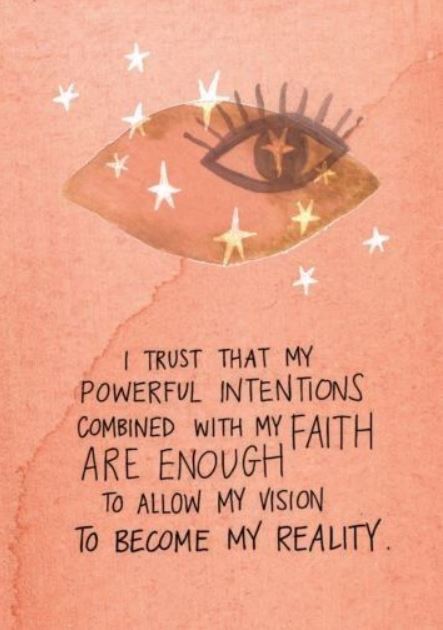 I TRUST THAT MY
POWERFUL INTENTIONS
COMBINED WITH MY FAITH
ARE ENOUGH
TO ALLOW MY VISION
TO BECOME MY REALITY.